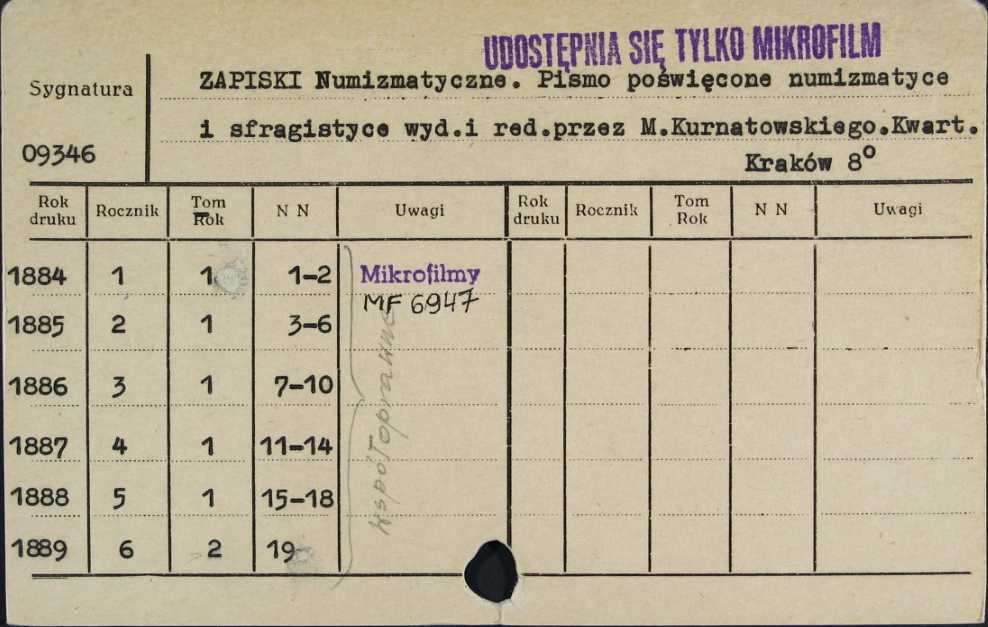 UDOSTĘPNIA SIĘ TYLKO MIKROFILM
Sygnatura
09346
ZAPISKI Numizmatyczne. Pismo poświęcone numizmatyce
i sfragistyce wyd.i red.przez M.Kurnatowskiego.Kwart.
Kraków 8°
Rok druku Rocznik Tom Rok N N Uwagi Rok druku Rocznik Tom Rok N N Uwagi
1884 1 1 1-2 Mikrofilmy
MF 6947
1885 2 1 3-6
1886 3 1 7-10
1887 4 1 11-14
1888 5 1 15-18
1889 6 2 19
współoprawne